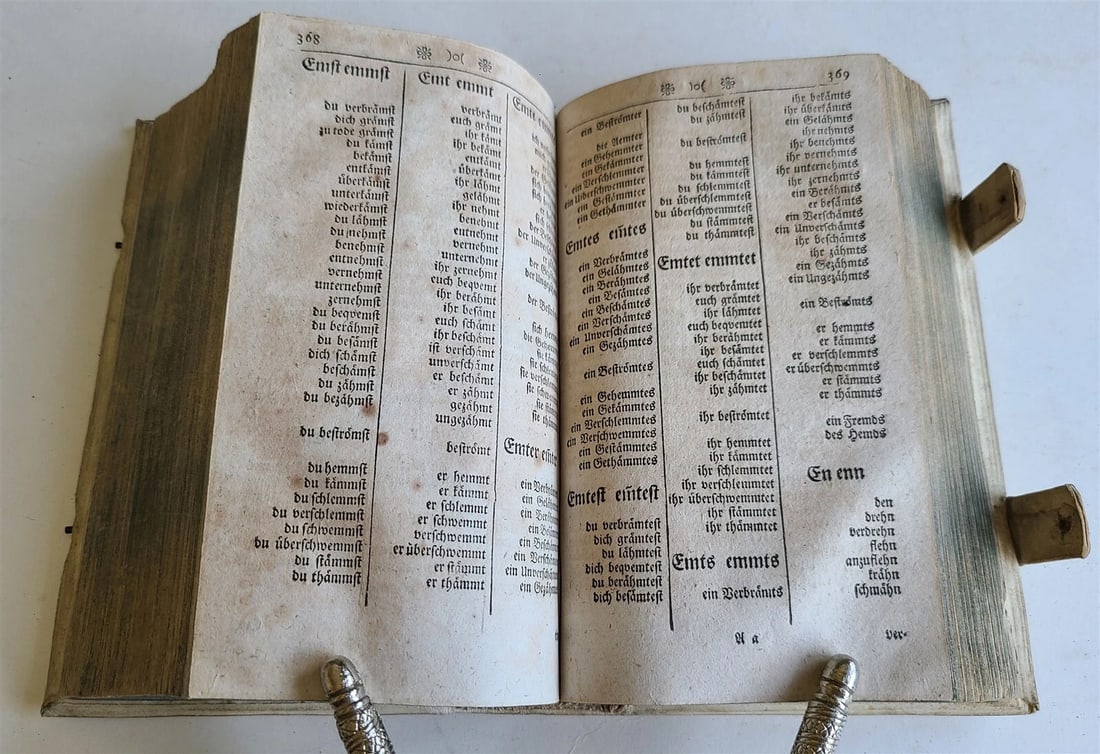 368
)o(
Emst emmst
du verbrämst
dich grämst
zu tode grämst
du kämst
bekämst
entkämst
überkämst
unterkämst
wiederkämst
du lähmst
du nehmst
benehmst
entnehmst
vernehmst
unternehmst
zernehmst
du beqvemst
du berähmst
du besämst
dich schämst
beschämst
du zähmst
du bezähmst
du beströmst
du hemmst
du kämmst
du schlemmst
du verschlemmst
du schwemmst
du überschwemmst
du stämmst
du thämmst
Emt emmt
verbrämt
euch grämt
ihr kämt
ihr bekämt
entkämt
überkämt
ihr lähmt
gelähmt
ihr nehmt
benehmt
entnehmt
vernehmt
unternehmt
ihr zernehmt
euch beqvemt
ihr berähmt
ihr besämt
euch schämt
ihr beschämt
ist verschämt
unverschämt
er beschämt
er zähmt
gezähmt
ungezähmt
beströmt
er hemmt
er kämmt
er schlemmt
er schwemmt
verschwemmt
er überschwemmt
er stämmt
er thämmt
Emter
369
)o(
ein Beströmter
die Aemter
ein Gehemmter
ein Gekämmter
ein Verschlemmter
ein Uberschwemmter
ein Gestämmter
ein Gethämmter
Emtes em̃tes
ein Verbrämtes
ein Gelähmtes
ein Berähmtes
ein Besämtes
ein Beschämtes
ein Verschämtes
ein Unverschämtes
ein Gezähmtes
ein Beströmtes
ein Gehemmtes
ein Gekämmtes
ein Verschlemmtes
ein Verschwemmtes
ein Gestämmtes
ein Gethämmtes
Emtest em̃test
du verbrämtest
dich grämtest
du lähmtest
dich beqvemtest
du berähmtest
dich besämtest
du beschämtest
du zähmtest
du beströmtest
du hemmtest
du kämmtest
du schlemmtest
du überschlemmtest
du überschwemmtest
du stämmtest
du thämmtest
Emtet emmtet
ihr verbrämtet
euch grämtet
ihr lähmtet
euch beqvemtet
ihr berähmtet
ihr besämtet
euch schämtet
ihr beschämtet
ihr zähmtet
ihr beströmtet
ihr hemmtet
ihr kämmtet
ihr schlemmtet
ihr verschlemmtet
ihr überschwemmtet
ihr stämmtet
ihr thämmtet
Emts emmts
ein Verbrämts
ihr bekämts
ihr überkämts
ein Gelähmts
ihr nehmts
ihr benehmts
ihr vernehmts
ihr unternehmts
ihr zernehmts
ein Berähmts
er besämts
ein Verschämts
ein Unverschämts
ihr beschämts
ihr zähmts
ein Gezähmts
ein Ungezähmts
ein Beströmts
er hemmts
er kämmts
er verschlemmts
er überschwemmts
er stämmts
er thämmts
ein Fremds
des Hemds
En enn
den
drehn
verdrehn
flehn
anzuflehn
krähn
schmähn
A a
ver-